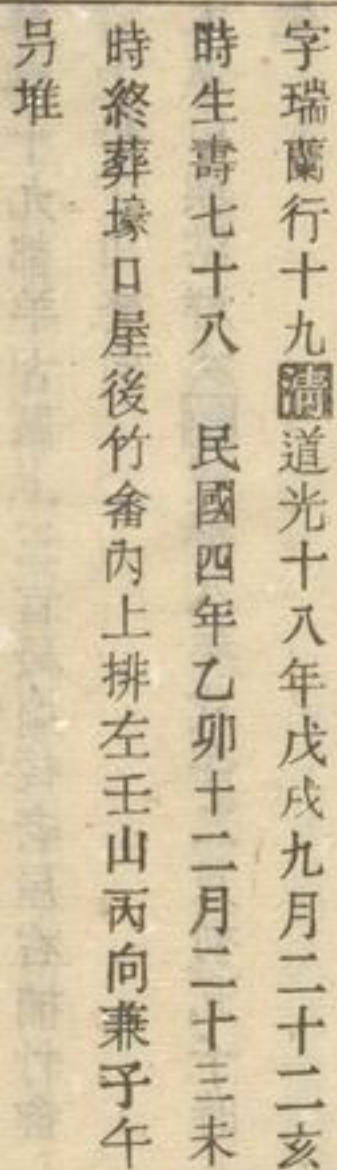 字瑞蘭行十九清道光十八年戊戌九月二十二亥
時生壽七十八　民國四年乙卯十二月二十三未
時終葬壕口屋後竹畬內上排左壬山丙向兼子午
另堆